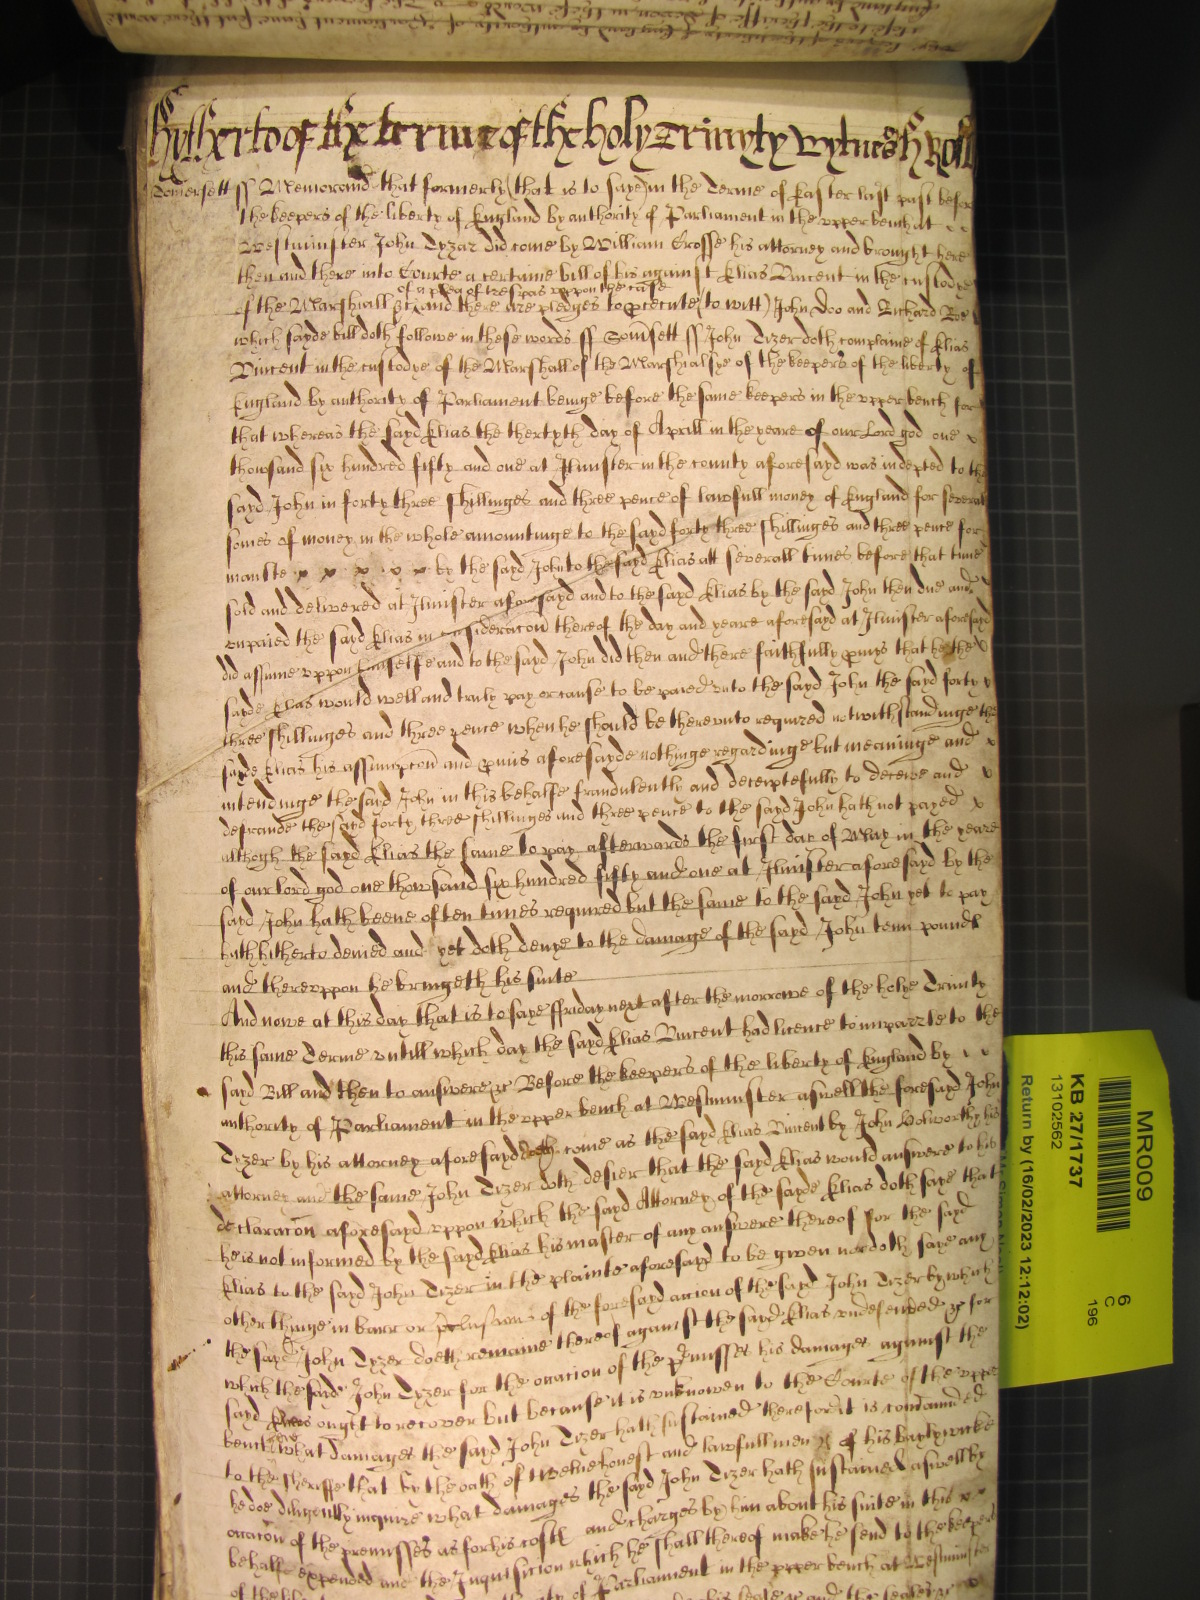 Hytherto of the terme of the holy Trinyty Wytnes H Roll
Somersett ss Memorand that formerly (that is to saye) in the Terme of Easter last past before
the keepers of the liberty of England by authority of Parliament in the upper bench at
Westminster John Tyzar did come by William Crosse his attorney and brought here
then and there into Courte a certaine bill of his against Elias Vincent in the custodye
of a plea of trespas uppon the case
of the Marshiall &c and there are pledges to p'secute (to witt) John Doo and Richard Roe
which sayde bill doth followe in these words ss Som'sett ss John Tizer doth complaine of Elias
Vincent in the custodye of the Marshall of the Marshialsye of the keepers of the liberty of
England by authority of Parliament beinge before the same keepers in the upper bench for
that whereas the sayd Elias the thertyth day of Aprill in the yeare of our Lord god one
thowsand six hundred fifty and one at Ilmister in the county aforesayd was indepted to the
sayd John in forty three shillinges and three pence of lawfull money of England for severall
somes of money in the whole amountinge to the sayd forty three shillinges and three pence for
by the sayd John to the sayd Elias att severall times before that time
sold and delivered at Ilmister aforesayd and to the sayd Elias by the sayd John then due and
unpaied the sayd Elias in consideracon thereof the day and yeare aforesayd at Ilmister aforesayd
did assume uppon himselfe and to the sayd John did then and there faithfully p'mis that he the
sayde Elias would well and truly pay or cause to be payed unto the sayd John the sayd forty
three shillinges and three pence when he should be thereunto required notwithstandinge the
sayde Elias his assumpcon and p'mis aforesayde nothinge regardinge but meaninge and
intendinge the sayd John in this behalfe fraudulently and deceiptefully to deceive and
defraude the sayd forty three shillinges and three pence to the sayd John hath not payed
althogh the sayd Elias the same to pay afterwards the first day of May in the yeare
of our lord god one thowsand six hundred fifty and one at Ilmister aforesayd by the
sayd John hath beene often times required but the same to the sayd John yet to pay
hath hitherto denied and yet doth denye to the damage of the sayd John tenn pounds
and thereuppon he bringeth his suite
And nowe at this day that is to saye ffriday next after the morrowe of the holye Trinity
this same Terme untill which day the sayd Elias Vincent had licence to imparle to the
sayd Bill and then to answere &c Before the keepers of the liberty of England by
authority of Parliament in the upper bench at Westminster aswell the foresayd John
Tizer by his attorney aforesayd doth come as the sayd Elias Vincent by John Holworthy his
attorney and the same John Tizer doth desier that the sayd Elias would answere to his
declaracon aforesayd uppon which the sayd Attorney of the sayde Elias doth saye that
he is not informed by the sayd Elias his master of any answere thereof for the sayd
Elias to the sayd John Tizer in the plainte aforesayd to be given nor doth saye any
other thinge in barr or p'clusion of the foresayd accion of the sayd John Tizer by which
the sayd John Tyzer doeth remaine thereof against the sayd Elias undefended &c for
which the sayd John Tyzer for the occacion of the p'misses his damages against the
sayd Elias ought to recover but because it is unknowen to the Courte of the upper
bench what damages the sayd John Tizer hath sustained therefore it is com'anded
to the sheriffe that by the oath of twelve honest and lawfull men &c of his baylywicke
he doe diligently inquire what damages the sayd John Tizer hath sustained aswell by
occacon of the premisses as for his costs and charges by him about his suite in this
behalfe expended and the Inquisicion which he shall thereof make he send to the keepers
of the of Parliament in the upper bench at Westminster
MR009
6
C
196
KB 27/1737
13102562
Return by (16/02/2023 12:12:02)